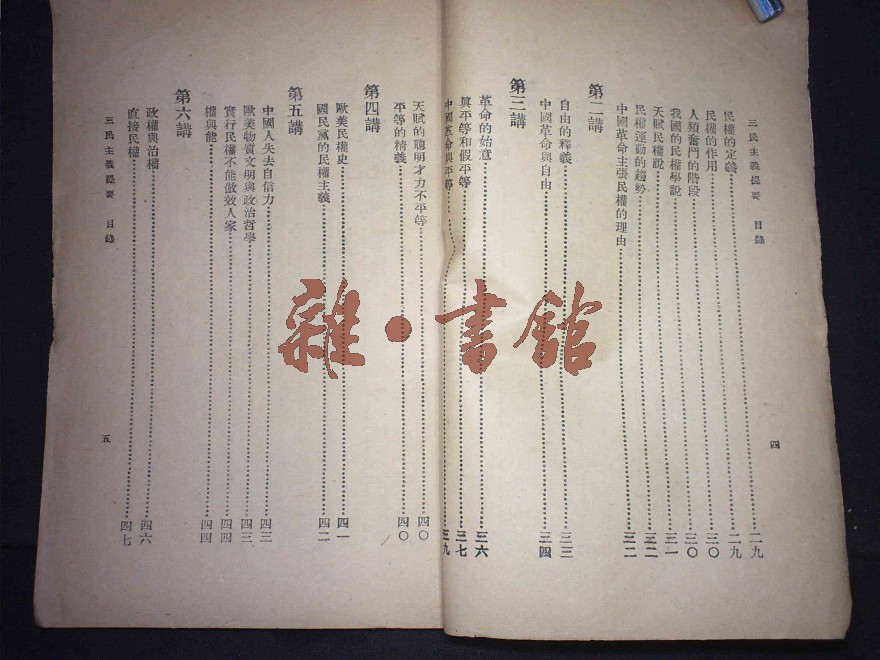 三民主義提要 目錄
四
民權的定義……二九
民權的作用……二九
人類奮鬥的階段……三〇
我國的民權學說……三〇
天賦民權說……三一
民權運動的趨勢……三二
中國革命主張民權的理由……三二
第二講
自由的釋義……三三
中國革命與自由……三四
第三講
革命的始意……三六
眞平等和假平等……三七
中國革命與平等……三九
天賦的聰明才力不平等……四〇
平等的精義……四〇
第四講
歐美民權史……四一
國民黨的民權主義……四二
第五講
中國人失去自信力……四三
歐美物質文明與政治哲學……四三
實行民權不能倣效人家……四四
權與能……四四
第六講
政權與治權……四六
直接民權……四七
三民主義提要 目錄
五
雜·書館